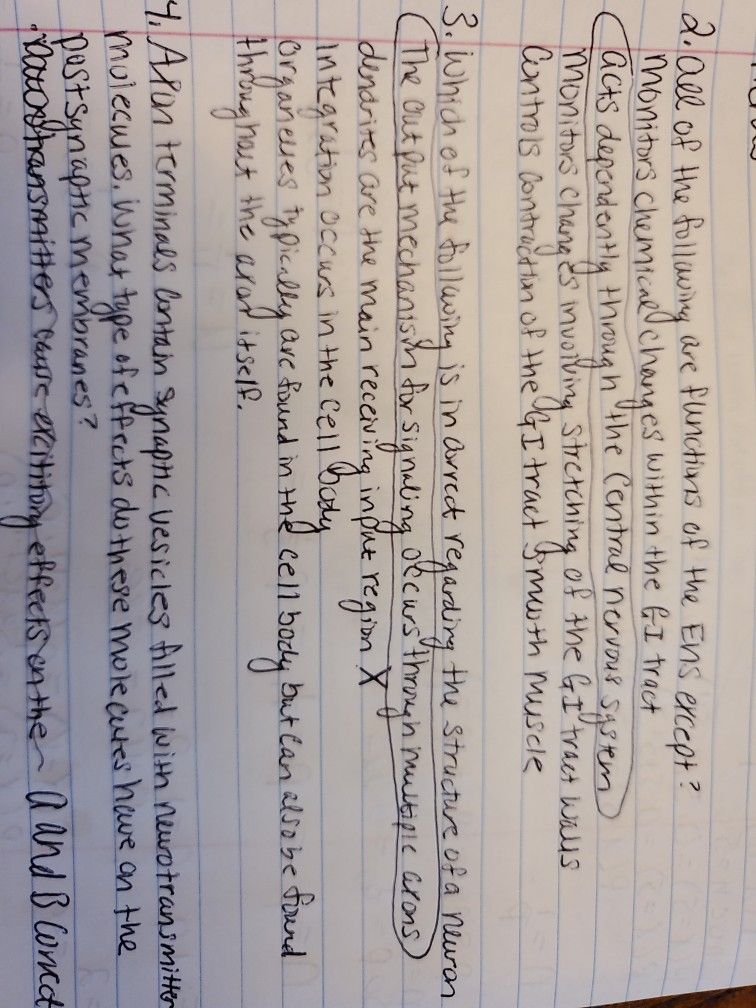 2. All of the following are functions of the ENS except?
monitors chemical changes within the GI tract
acts dependently through the central nervous system
monitors changes involving stretching of the GI tract walls
controls contraction of the GI tract smooth muscle
3. which of the following is incorrect regarding the structure of a neuron
The output mechanism for signaling occurs through multiple axons
dendrites are the main receiving input region X
integration occurs in the cell body
organelles typically are found in the cell body but can also be found
throughout the axon itself.
4. Axon terminals contain synaptic vesicles filled with neurotransmitter
molecules. What type of effects do these molecules have on the
postsynaptic membranes?
neurotransmitters cause excititory effects on the A and B correct